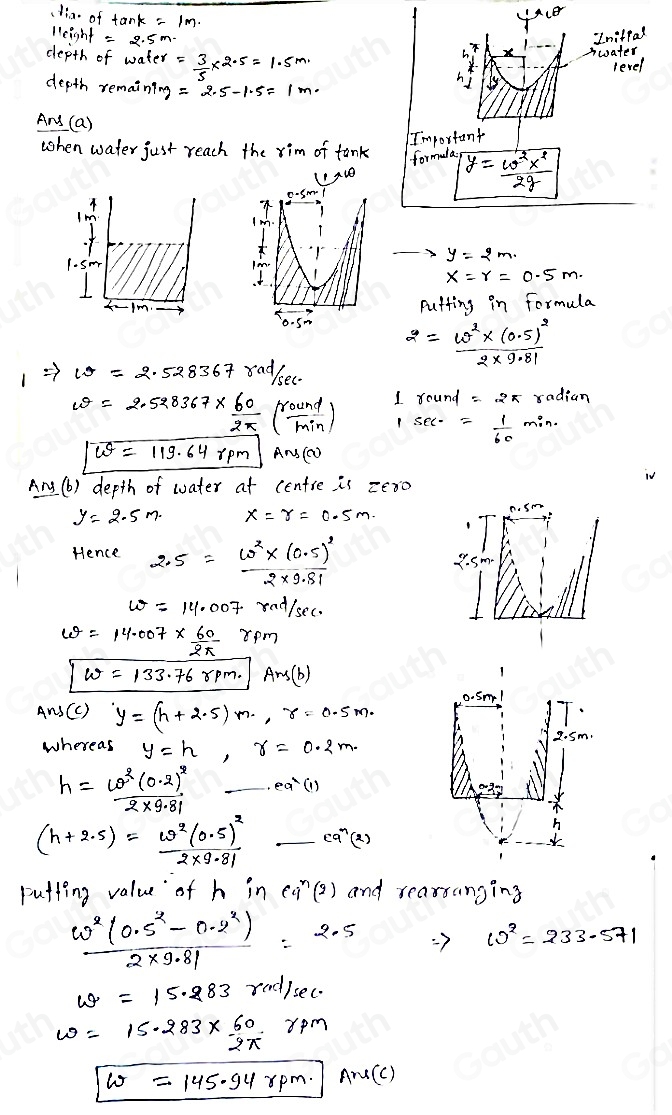 dia. of tank = 1m.
Height = 2.5m.
depth of water = 3/5 × 2.5 = 1.5m.
depth remaining = 2.5-1.5 = 1m.
ω
h
h
x
y
Initial
water
level
Important
formula
y = ω²x²/2g
Ans (a)
when water just reach the rim of tank
1m.
1.5m
1m.
0.5m
ω
1m.
1m
0.5m
→ y = 2m.
x = r = 0.5m.
Putting in formula
2 = ω² × (0.5)²/2 × 9.81
⇒ ω = 2.528367 rad/sec.
ω = 2.528367 × 60/2π (round/min)
1 round = 2π radian
1 sec. = 1/60 min.
ω = 119.64 rpm Ans(a)
Ans (b) depth of water at centre is zero
y = 2.5m. x = r = 0.5m.
Hence 2.5 = ω² × (0.5)²/2 × 9.81
ω = 14.007 rad/sec.
ω = 14.007 × 60/2π rpm
ω = 133.76 rpm. Ans(b)
0.5m
2.5m.
iv
Ans(c) y = (h + 2.5) m., r = 0.5m.
whereas y = h, r = 0.2m.
h = ω²(0.2)²/2 × 9.81 — eqⁿ(1)
(h + 2.5) = ω²(0.5)²/2 × 9.81 — eqⁿ(2)
0.5m
2.5m.
0.2m
h
putting value of h in eqⁿ(2) and rearranging
ω²(0.5² - 0.2²)/2 × 9.81 = 2.5 ⇒ ω² = 233.571
ω = 15.283 rad/sec.
ω = 15.283 × 60/2π rpm
ω = 145.94 rpm. Ans(c)
Gauth